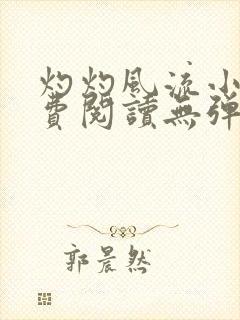 灼灼風流小
費閱讀無彈
郭晨然